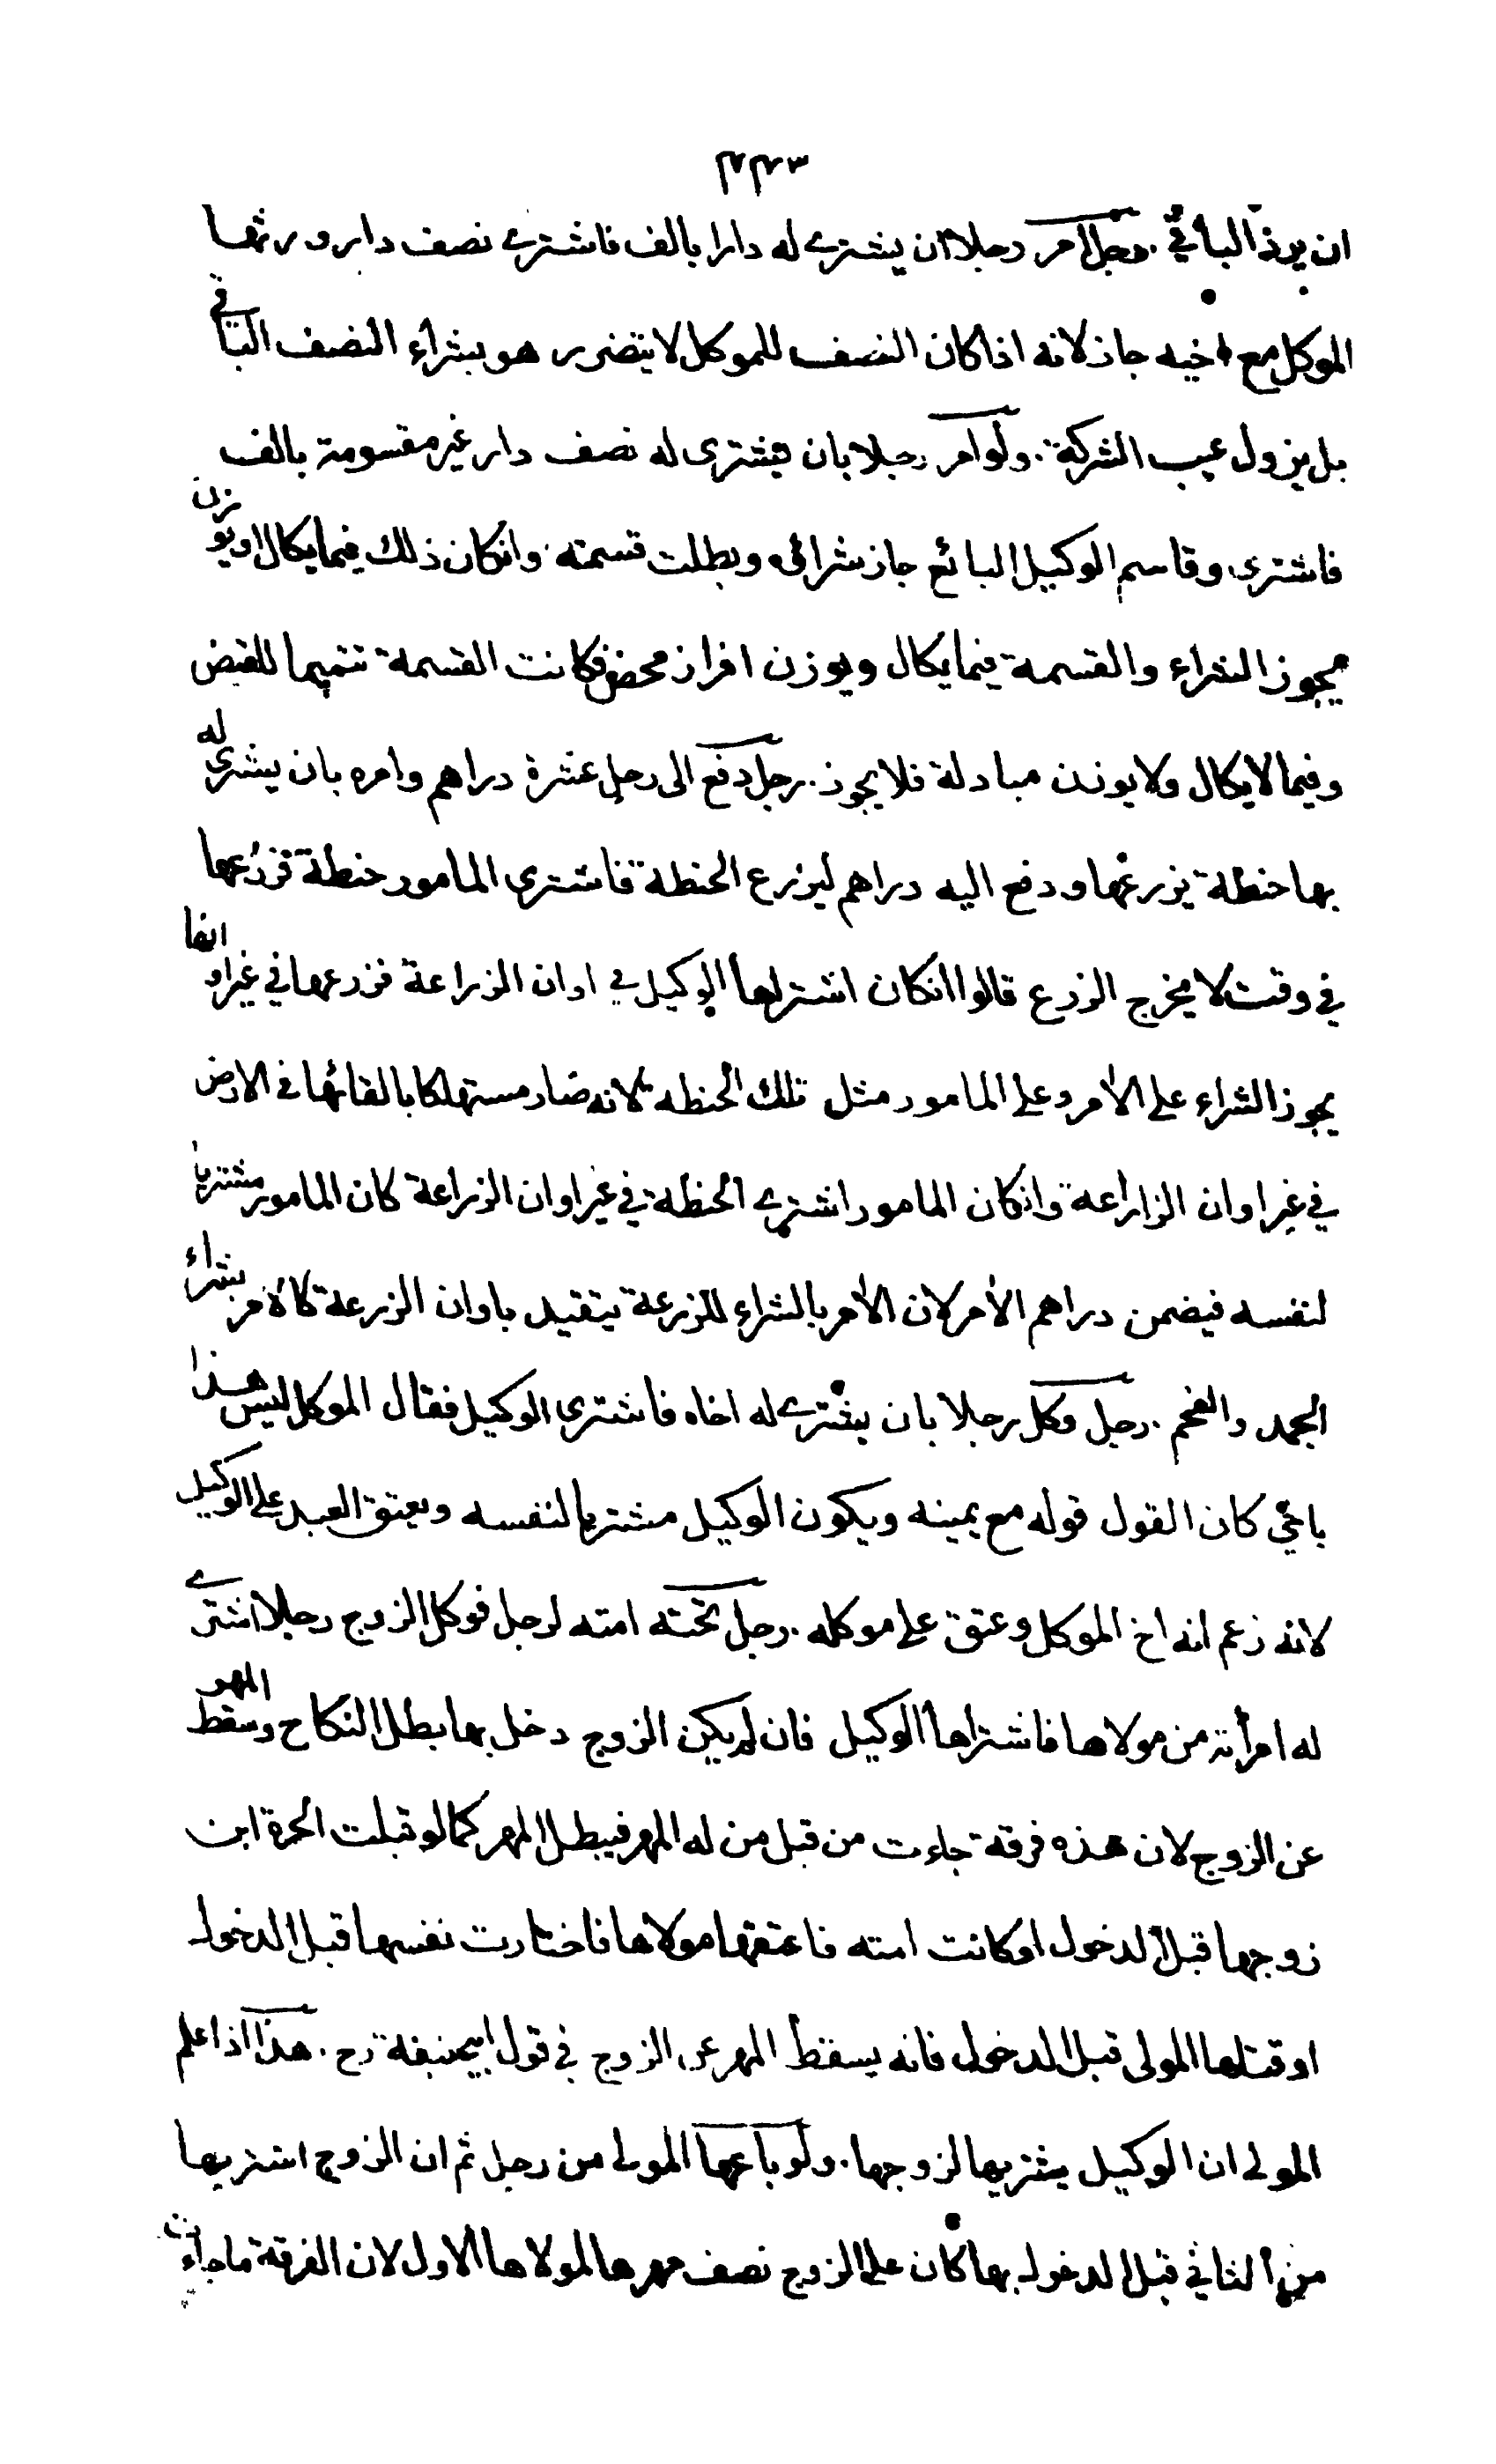 ٢٢٣
ان يرد الباقي. رجل امر رجلا ان يشترے له دارا بالف فاشترے نصف دار ورثها
الموكل مع اخيه جاز لانه اذا كان النصف للموكل لا يتضرر هو بشراء النصف الباقي
بل يزول عيب الشركة. ولو امر رجلا بان يشترى له نصف دار غير مقسومة بالف
فاشترى وقاسم الوكيل البائع جاز شرائه وبطلت قسمته وانكان ذلك فيما يكال او يوزن
يجوز الشراء والقسمة فيما يكال ويوزن افراز محض فكانت القسمة تتميما للقبض
وفيما لا يكال ولا يوزن مبادلة فلا يجوز. رجل دفع الى رجل عشرة دراهم وامره بان يشترى له
بها حنطة يزرعها ودفع اليه دراهم ليزرع الحنطة فاشترى المامور حنطة فزرعها
في وقت لا يخرج الزرع قالوا انكان اشتراها الوكيل في اوان الزراعة فزرعها في غير اوانها
يجوز الشراء على الآمر وعلى المامور مثل تلك الحنطة لانه صار مستهلكا بالقائها في الارض
في غير اوان الزاراعة وانكان المامور اشترے الحنطة في غير اوان الزراعة كان المامور مشتريا
لنفسه فيضمن دراهم الآمر لان الامر بالشراء للزرعة يتقيد باوان الزرعة كالامر بشراء
الجمد والفحم. رجل وكل رجلا بان يشترے له اخاه فاشترى الوكيل فقال الموكل ليس هذا
باخي كان القول قوله مع يمينه ويكون الوكيل مشتريا لنفسه ويعتق العبد على الوكيل
لانه زعم انه اخ الموكل وعتق على موكله. رجل تحته امته لرجل فوكل الزوج رجلا اشترے
له امرأته من مولاها فاشتراها الوكيل فان لم يكن الزوج دخل بها بطل النكاح وسقط المهر
عن الزوج لان هذه فرقة جاءت من قبل من له المهر فيبطل المهر كما لو قبلت الحرة ابن
زوجها قبل الدخول او كانت امته فاعتقها مولاها فاختارت نفسها قبل الدخول
او قتلها المولى قبل الدخول فانه يسقط المهر عن الزوج في قول ابيحنيفة رح. هذا اذا علم
المولى ان الوكيل يشتريها لزوجها. ولو باعها المولى من رجل ثم ان الزوج اشتريها
من الثاني قبل الدخول بها كان على الزوج نصف مهرها لمولاها الاول لان الفرقة ما جاءت